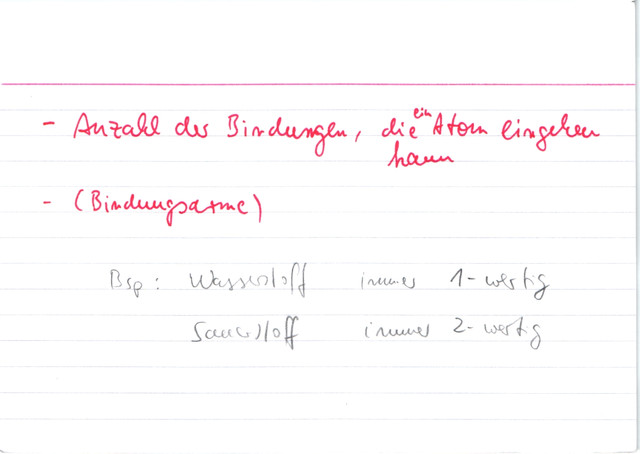 - Anzahl der Bindungen, die ein Atom eingehen
kann
- (Bindungsarme)
Bsp: Wasserstoff immer 1-wertig
Sauerstoff immer 2-wertig